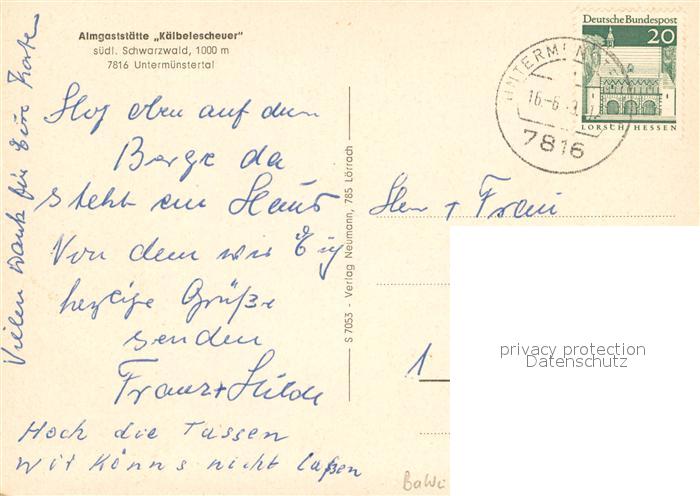 Almgaststätte „Kälbelescheuer"
südl. Schwarzwald, 1000 m
7816 Untermünstertal
Vielen Dank für Eure Karte
Hoch oben auf dem
Berge da
steht ein Haus
Von dem wir Euch
herzige Grüße
senden
Franz + Hilde
Hoch die Tassen
wir könns nicht laßen
S 7053 - Verlag Neumann, 785 Lörrach
Deutsche Bundespost
20
LORSCH/HESSEN
16.-6.
7816
Herr + Frau
1
privacy protection
Datenschutz
BaWü